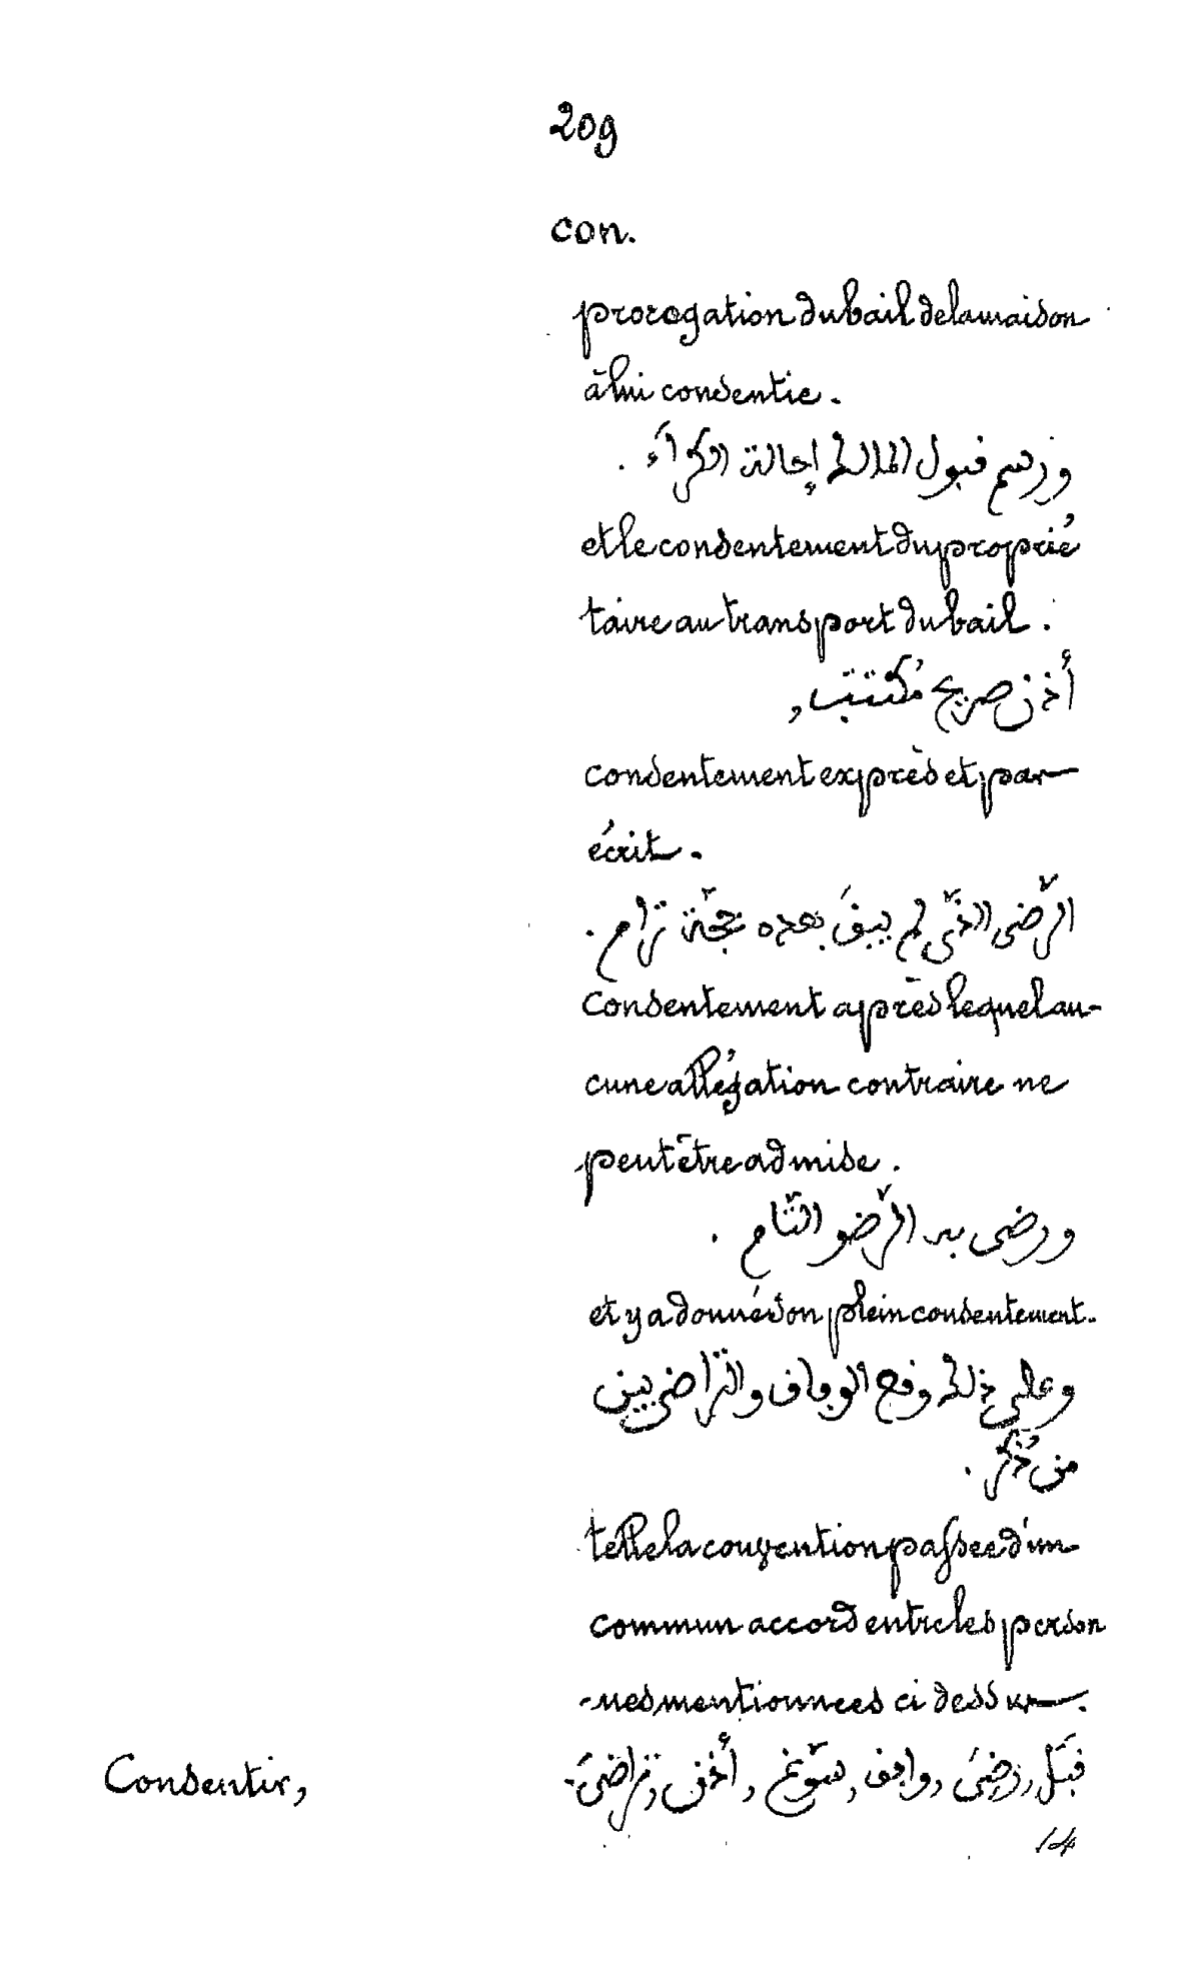 209
con.
prorogation du bail de la maison
à lui consentie.
ورسم قبول المالك إحالة الكرآء.
et le consentement du proprié
taire au transport du bail.
أذن صريح مُكتتب,
consentement exprès et par
écrit.
الرّضى الذّى لم يبقَ بعده بحجّة ترام.
consentement après lequel au-
cune allégation contraire ne
peut être admise.
ورضى به الرّضو التّام.
et y a donné son plein consentement.
وعلى ذلك وقع الوفاق والتّراضى بين
من ذُكر.
telle la convention passée d'un
commun accord entre les person
-nes mentionnées ci dessus.
Consentir, قبَل, رضىَ, وافق, سوّغ, أذن, تراضىَ.
14